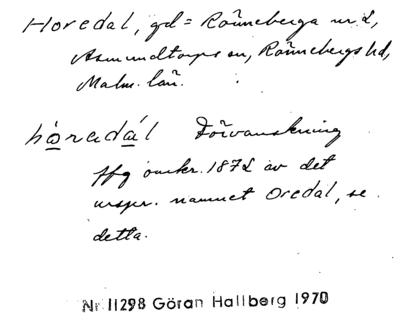 Horedal, gd = Rönneberga nr 2,
Asmundtorps sn, Rönnebergs hd,
Malm. län.
hòredál Förvanskning
ffg omkr. 1872 av det
urspr. namnet Oredal, se
detta.
Nr 11298 Göran Hallberg 1970